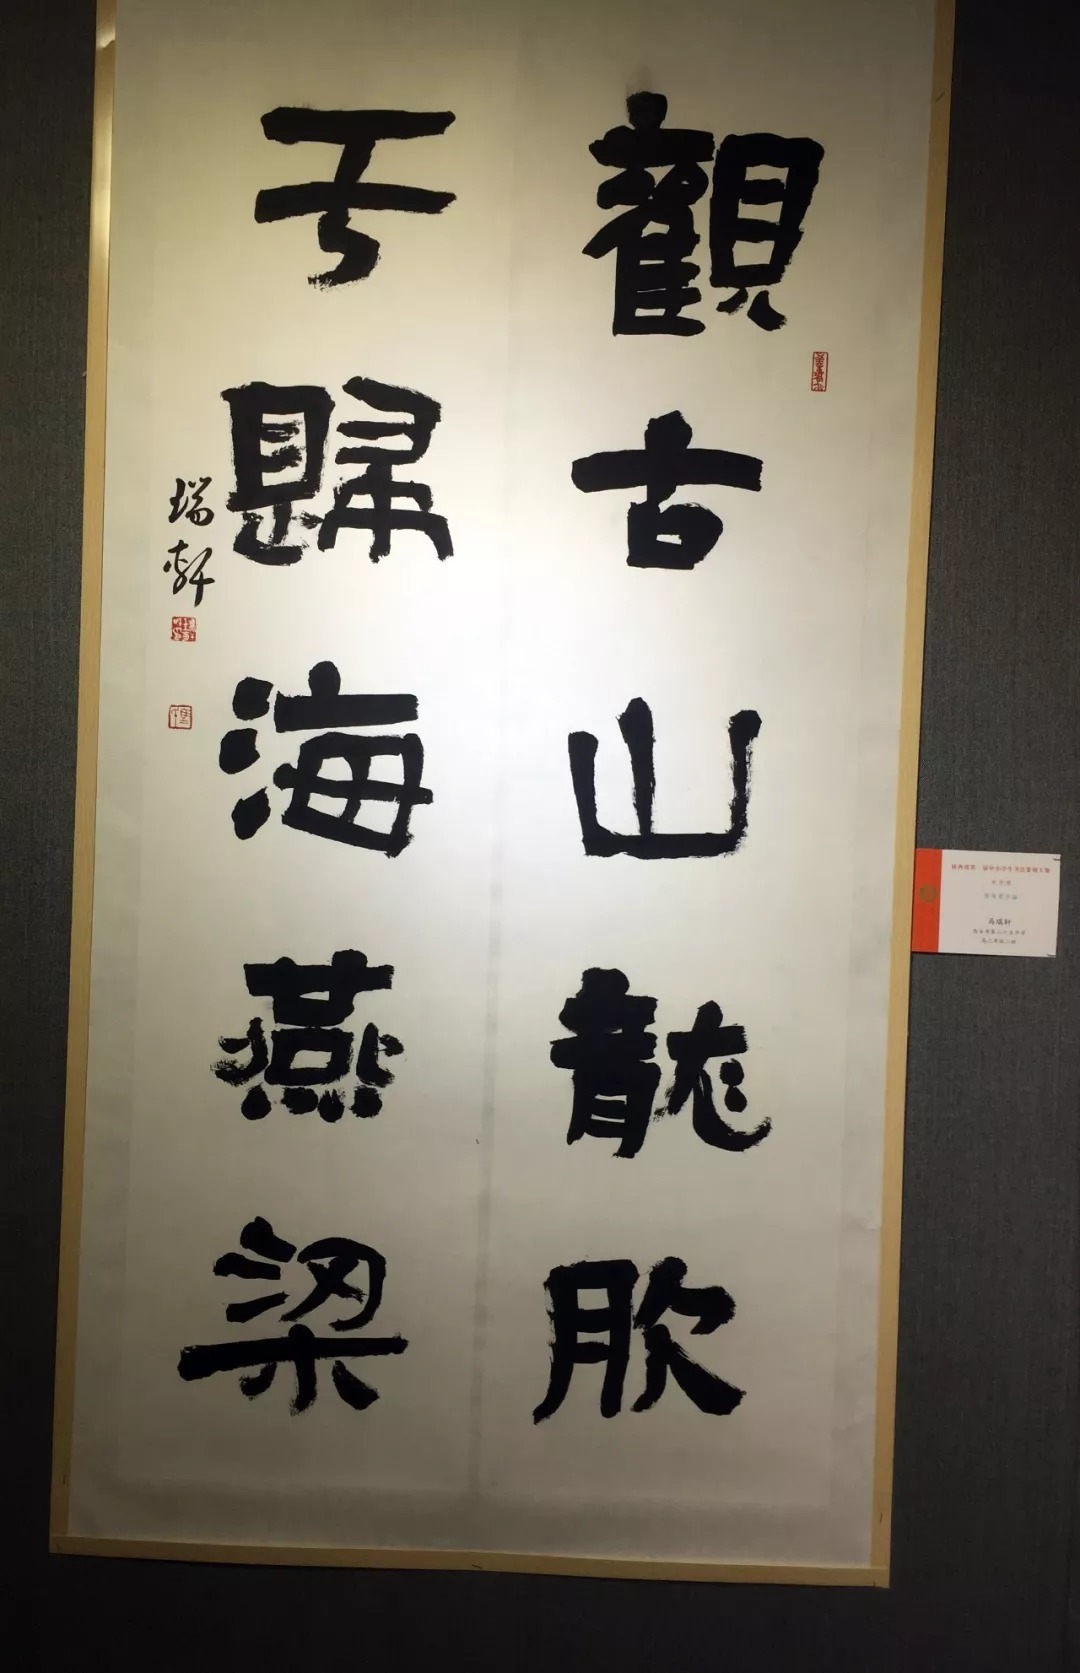 觀古山龍肷
于歸海燕梁
瑞軒
马瑞轩